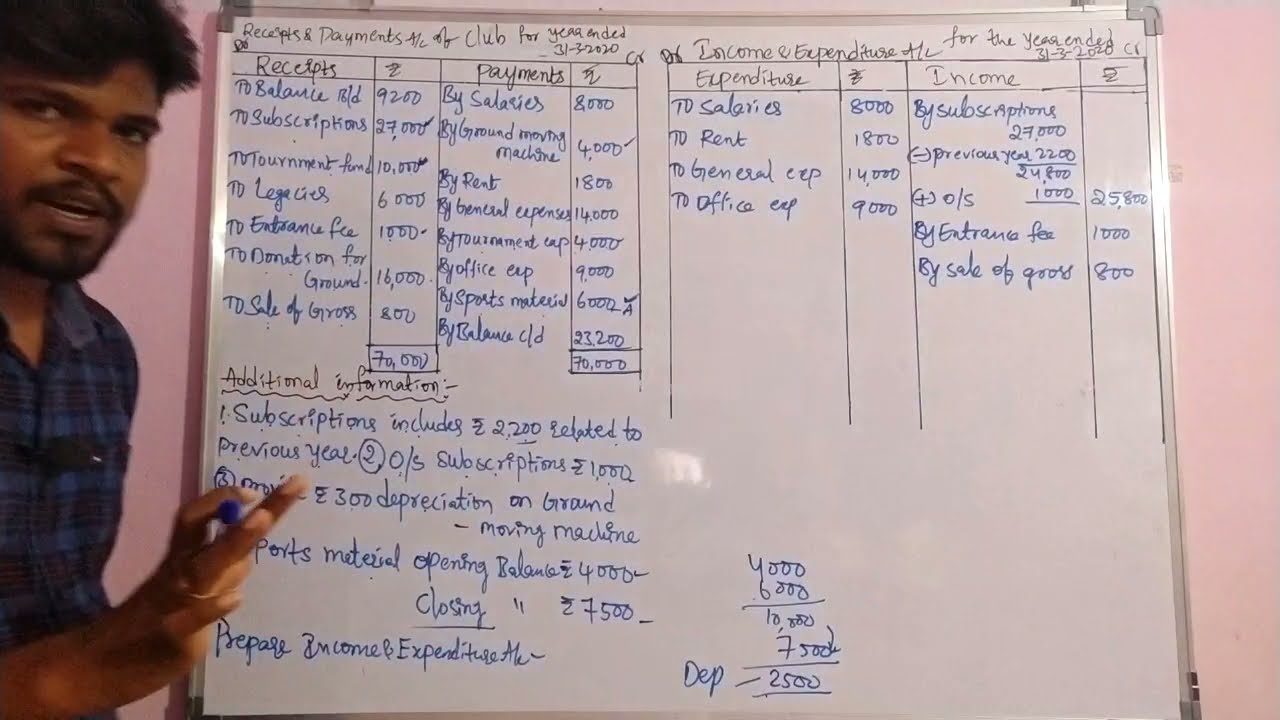 Receipts & Payments A/c of Club for year ended
31-3-2020
Dr Cr
Receipts ₹ Payments ₹
To Balance B/d 9200 By Salaries 8000
To Subscriptions 27,000 By Ground moving
machine 4,000
To Tournment fund 10,000
To Legacies 6000 By Rent 1800
By General expenses 14,000
To Entrance fee 1000 By Tournament exp 4,000
To Donation for
Ground. 16,000 By office exp 9,000
To Sale of Gross 800 By Sports material 6000
By Balance c/d 23,200
70,000 70,000
Additional information:-
1. Subscriptions includes ₹ 2,200 related to
previous year. 2) O/s Subscriptions ₹ 1,000
3) ₹ 300 depreciation on Ground
- moving machine
ports material opening Balance ₹ 4000
Closing " ₹ 7500
Prepare Income & Expenditure A/c -
Dr Income & Expenditure A/c for the year ended
31-3-2020 Cr
Expenditure ₹ Income ₹
To Salaries 8000 By subscriptions
27,000
To Rent 1800 (-) previous year 2200
24,800
To General exp 14,000
To Office exp 9000 (+) O/s 1000 25,800
By Entrance fee 1000
By sale of gross 800
4000
6000
10,000
7500
Dep - 2500